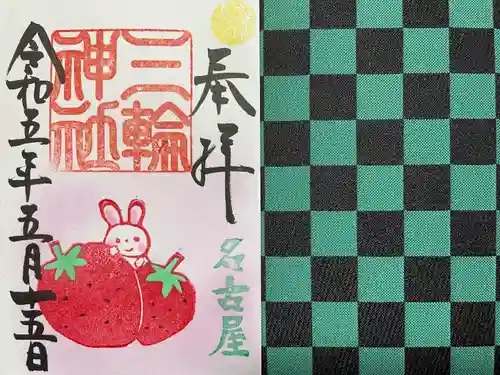 奉拝
三輪
神社
名古屋
令和五年五月十五日